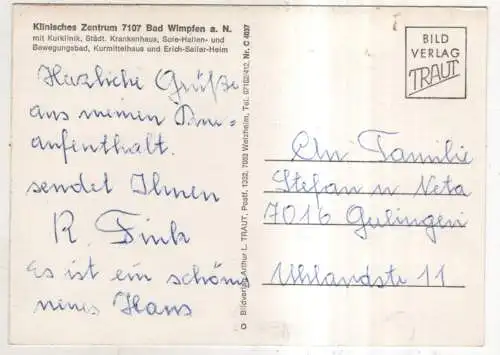 Klinisches Zentrum 7107 Bad Wimpfen a. N.
mit Kurklinik, Städt. Krankenhaus, Sole-Hallen- und
Bewegungsbad, Kurmittelhaus und Erich-Sailer-Heim
Herzliche Grüße
aus meinen
aufenthalt.
sendet Ihnen
R. Fink
Es ist ein schönes
neues Haus
© Bildverlag Arthur L. TRAUT, Postf. 1332, 7063 Welzheim, Tel. 07182/412, Nr. C 4037
BILD
VERLAG
TRAUT
An Familie
Stefan u Neta
7016 Gerlingen
Uhlandstr 11